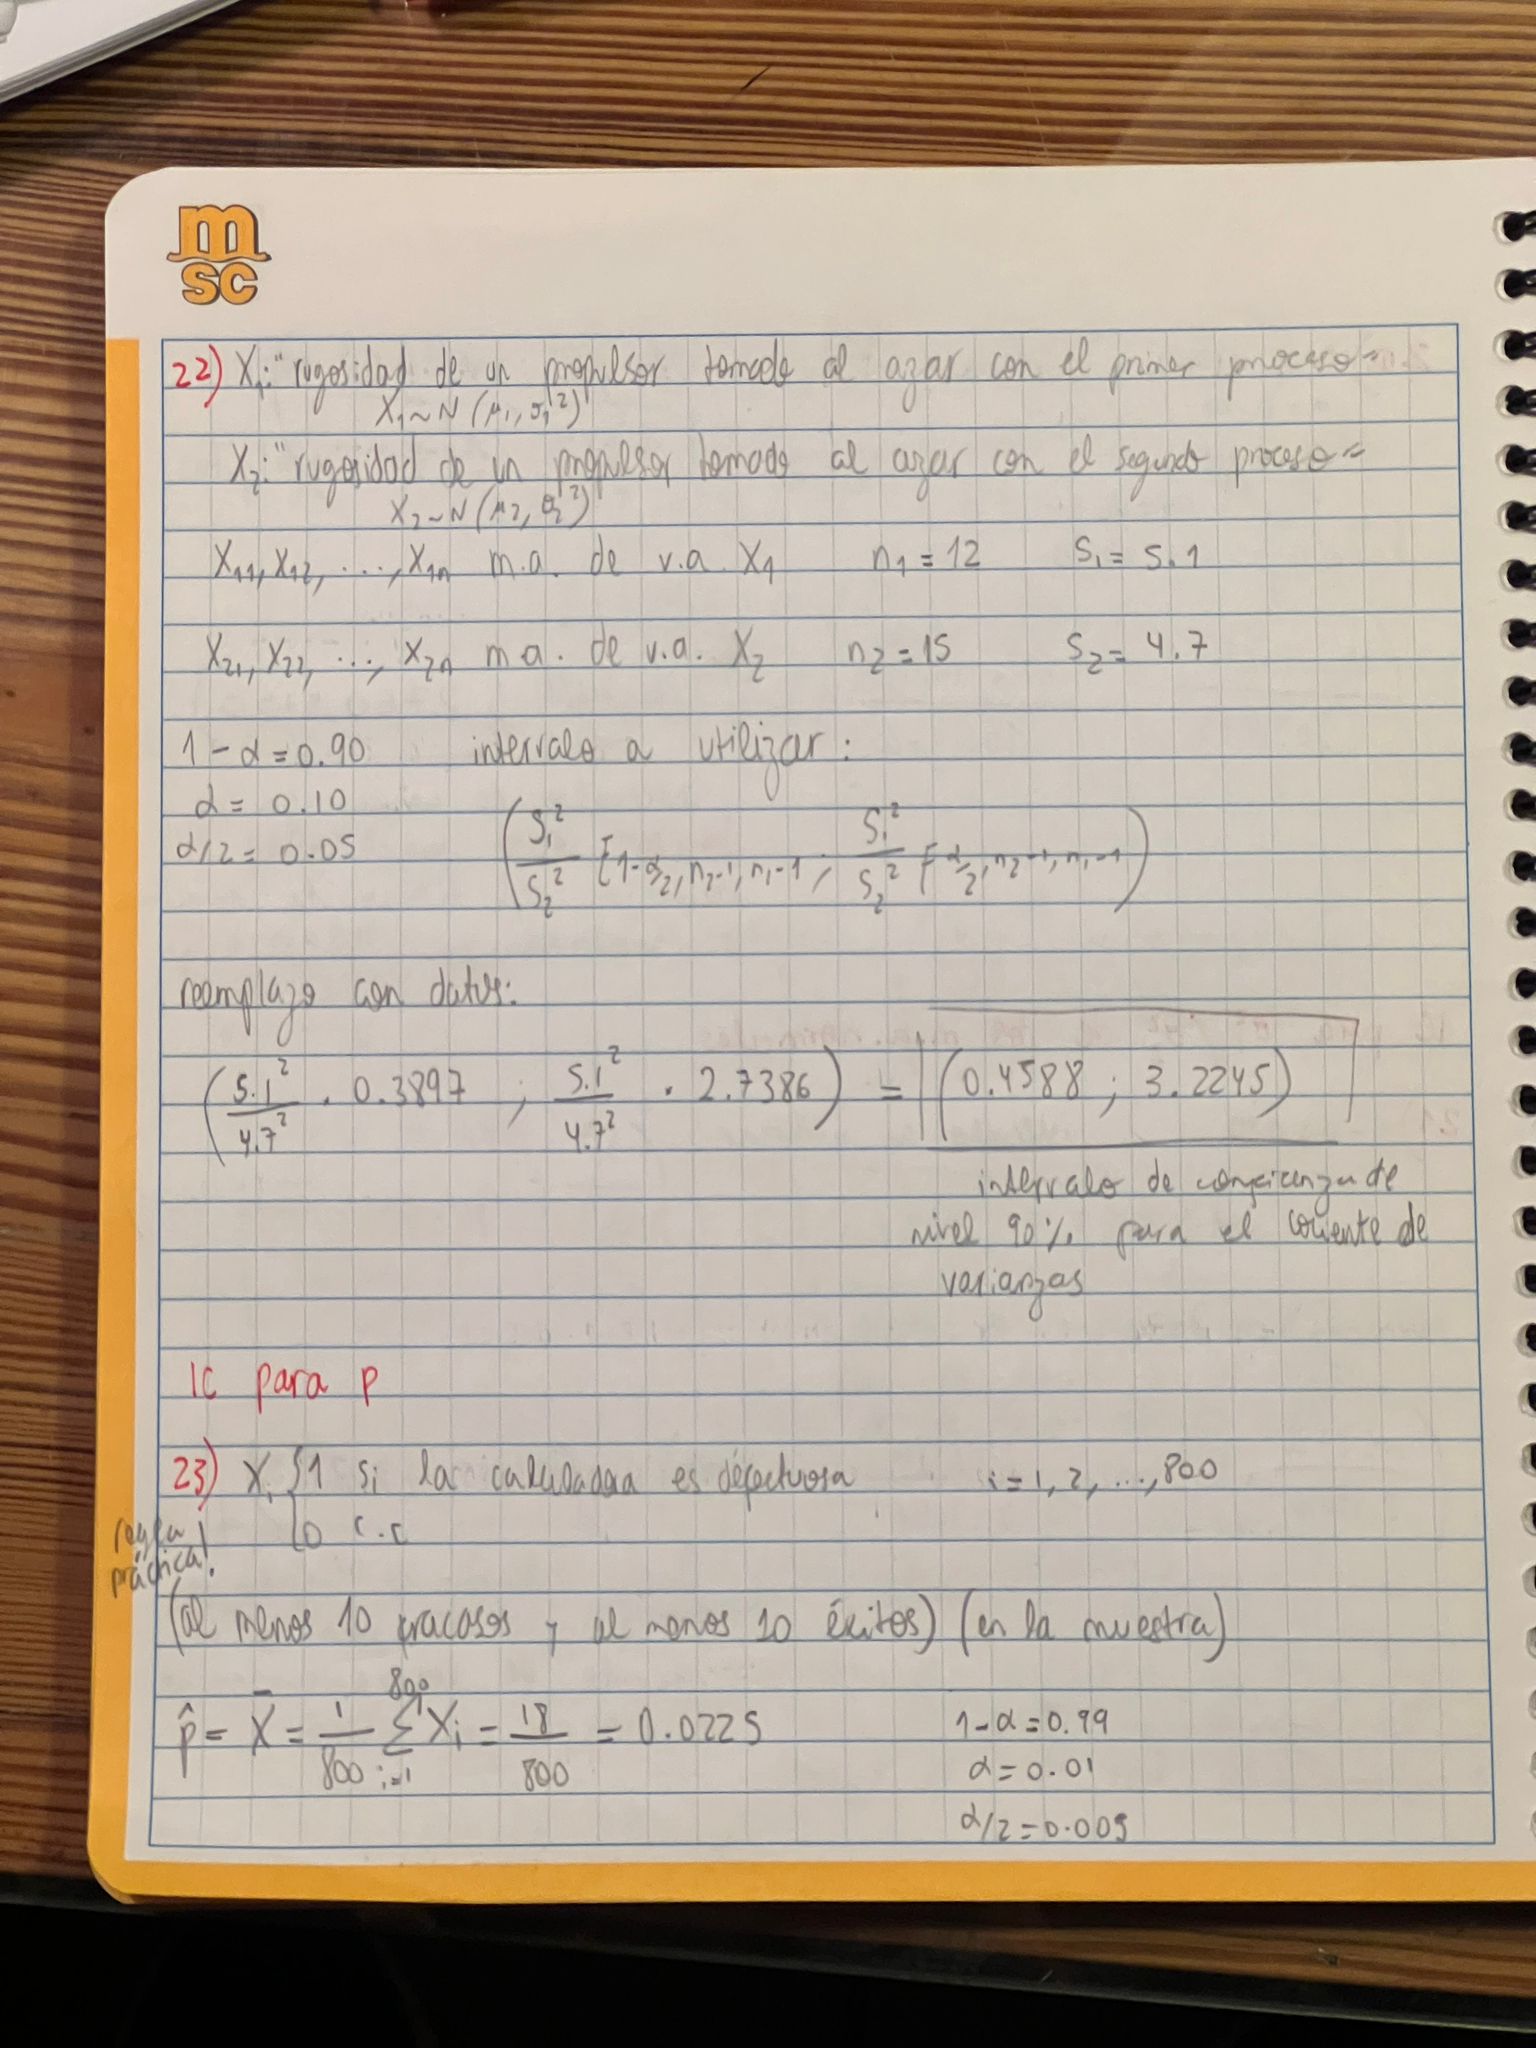 msc
22) X₁: "rugosidad de un propulsor tomado al azar con el primer proceso"
X₁ ~ N(μ₁, σ₁²)
X₂: "rugosidad de un propulsor tomado al azar con el segundo proceso"
X₂ ~ N(μ₂, σ₂²)
X₁₁, X₁₂, ..., X₁ₙ m.a. de v.a. X₁ n₁ = 12 S₁ = 5.1
X₂₁, X₂₂, ..., X₂ₙ m.a. de v.a. X₂ n₂ = 15 S₂ = 4.7
1 - α = 0.90 intervalo a utilizar:
α = 0.10
α/2 = 0.05 (S₁²/S₂² F 1-α/2, n₂-1, n₁-1 ; S₁²/S₂² F α/2, n₂-1, n₁-1)
reemplazo con datos:
(5.1²/4.7² · 0.3897 ; 5.1²/4.7² · 2.7386) = (0.4588 ; 3.2245)
intervalo de confianza de
nivel 90% para el cociente de
varianzas
IC para p
23) Xᵢ {1 si la calculadora es defectuosa i = 1, 2, ..., 800
0 c.c
regla
práctica!
(al menos 10 fracasos y al menos 10 éxitos) (en la muestra)
p̂ = X̄ = 1/800 Σ⁸⁰⁰ᵢ₌₁ Xᵢ = 18/800 = 0.0225 1-α = 0.99
α = 0.01
α/2 = 0.005